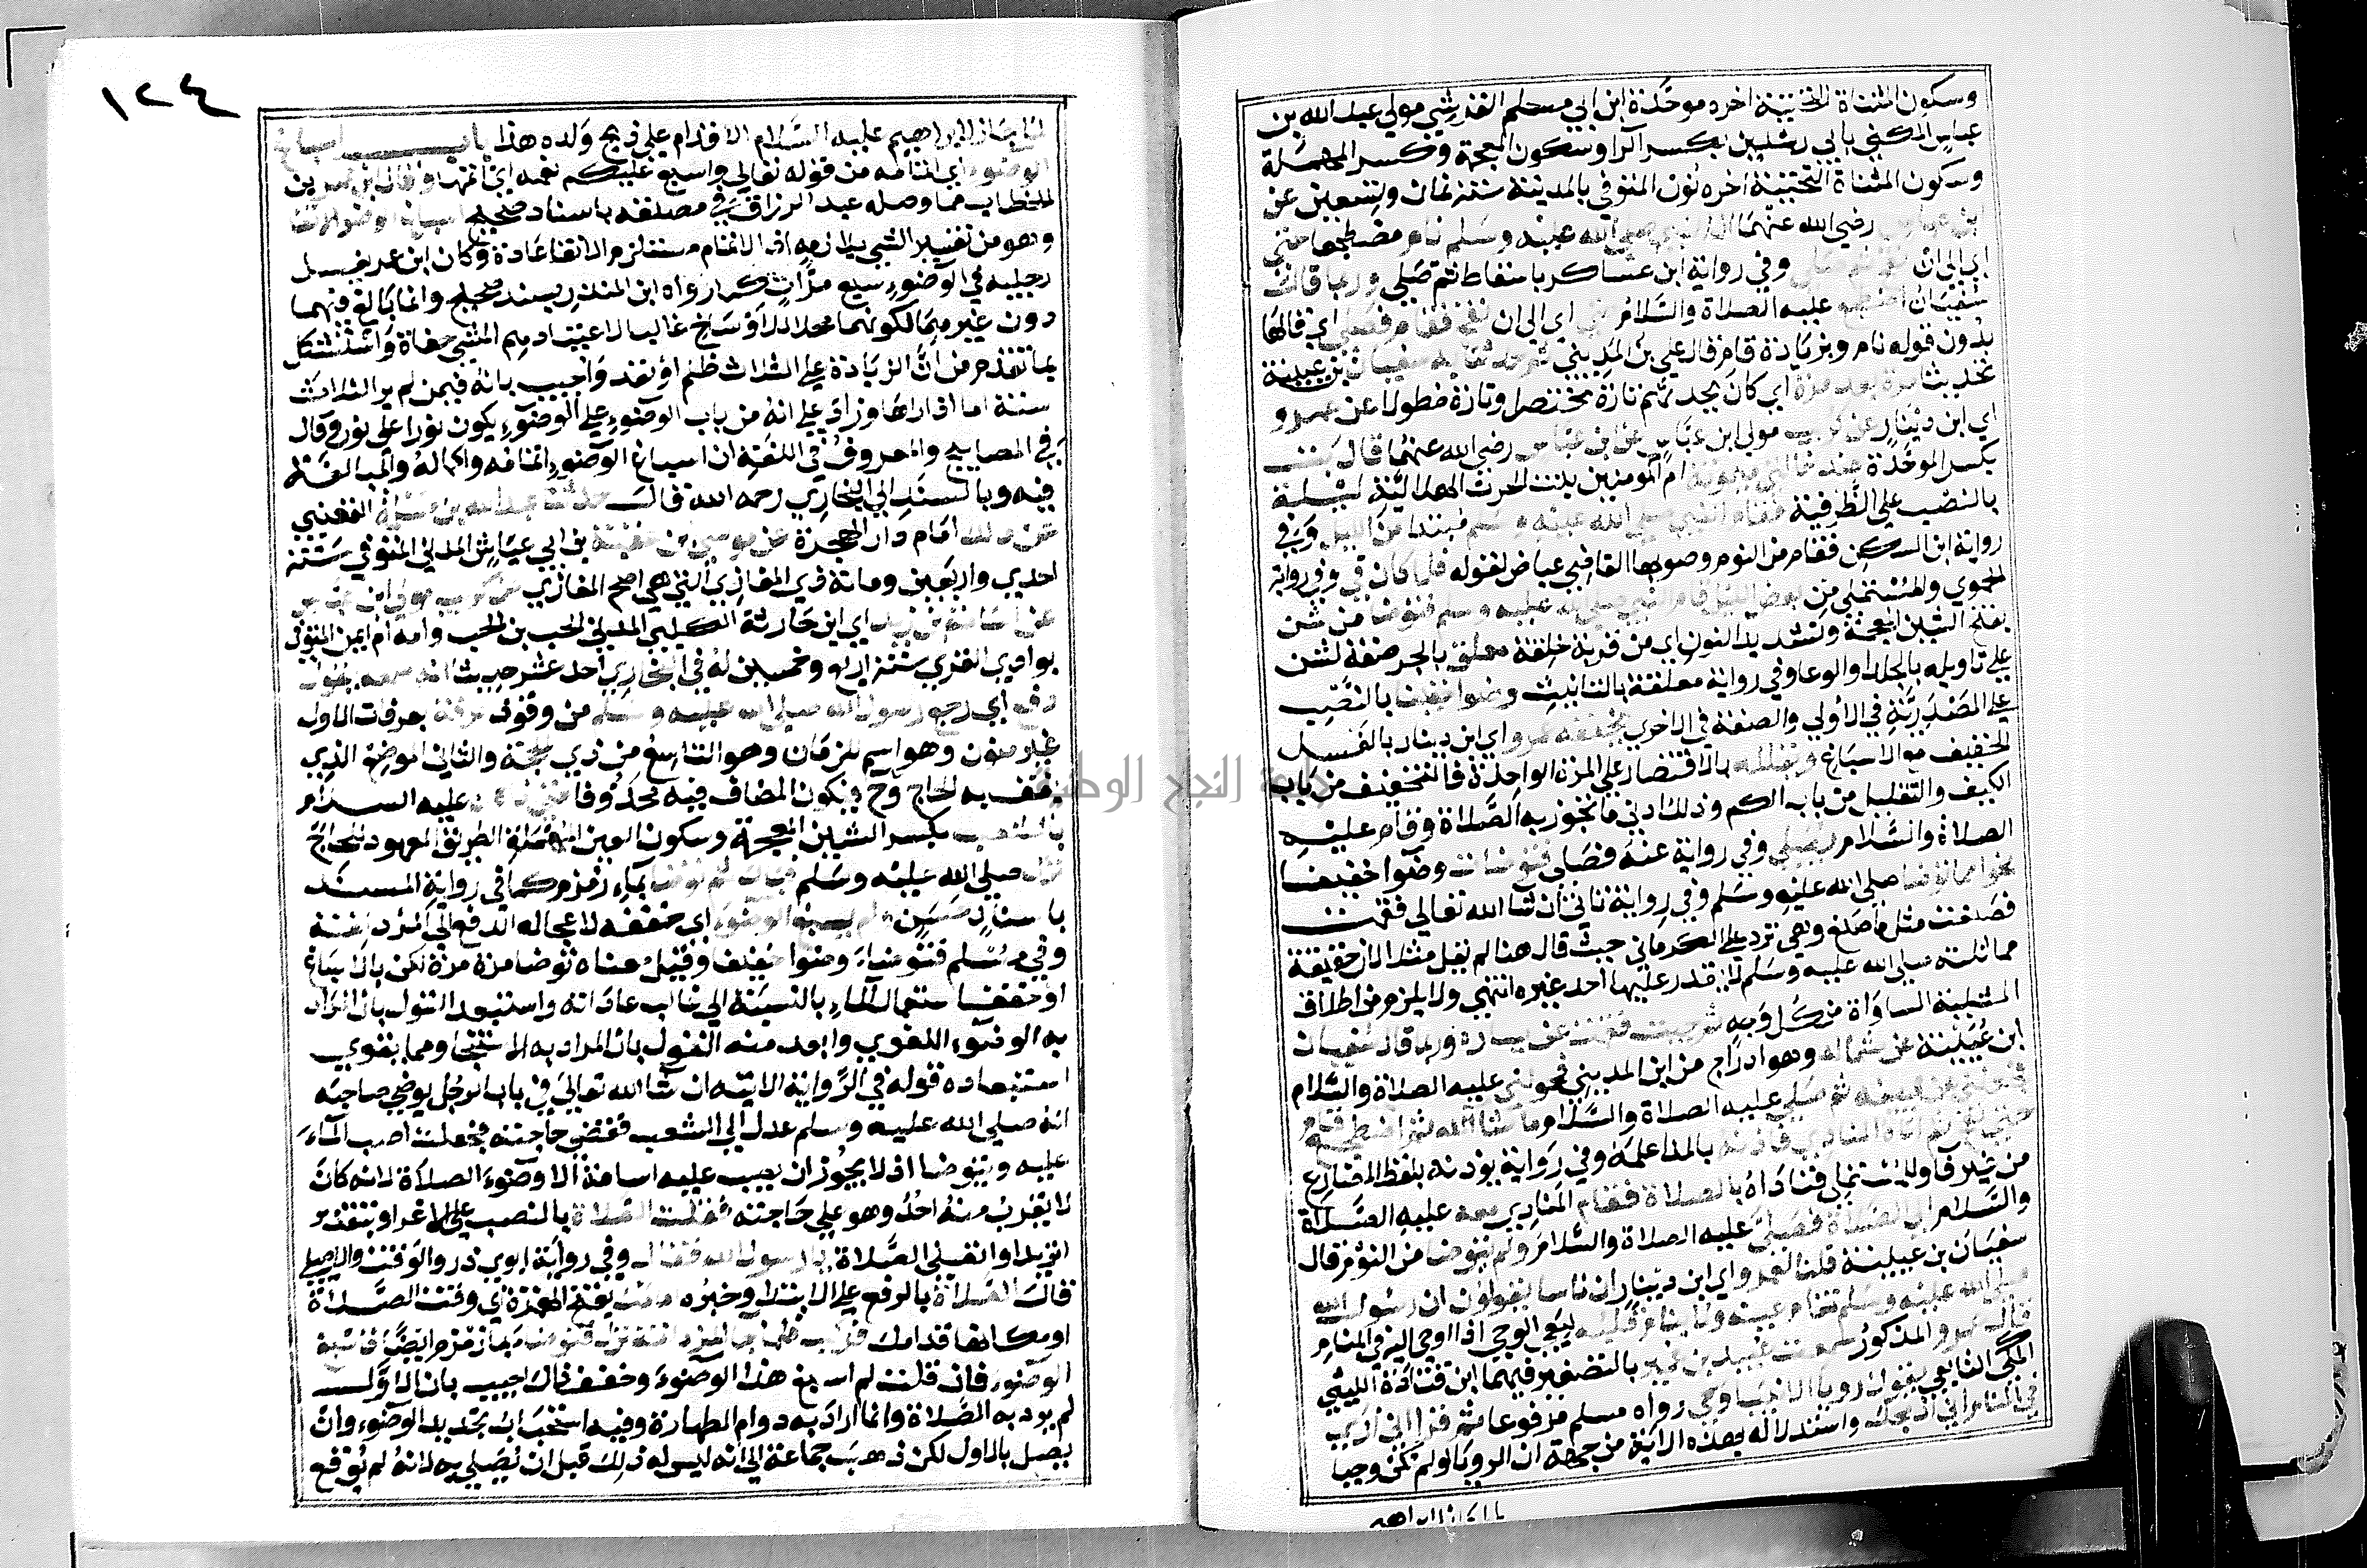 وسكون المثناة التحتية اخره موحدة ابن ابي مسلم القرشي مولي عبد الله بن
عباس المكني بابي رشدين بكسر الرا وسكون المعجمة وكسر المهملة
وسكون المثناة التحتية اخره نون المتوفي بالمدينة سنة ثمان وتسعين عن
ابن عباس رضي الله عنهما ان النبي صلي الله عليه وسلم نام مضطجعا حتي
اي الي ان نفخ ثم صلي وفي رواية ابن عساكر باسقاط ثم صلي وربما قالت
سفيان اضطجع عليه الصلاة والسلام حتي اي الي ان نفخ فقام فصلي اي قالها
بدون قوله نام وبزيادة قام قال علي بن المديني ثم حدثنا به سفيان بن عيينة
تحديثا مرة بعد مرة اي كان يحدثهم تارة مختصرا وتارة مطولا عن عمرو
اي ابن دينار عن كريب مولي ابن عباس عن ابن عباس رضي الله عنهما قال بت
بكسر الموحدة عند خالتي ميمونة ام المومنين بنت الحرث الهلالية ليلة
بالنصب علي الظرفية فقام النبي صلي الله عليه وسلم مبتدا من الليل وفي
رواية ابن السكن فقام من النوم وصوبها القاضي عياض لقوله فلما كان في وفي رواية
الحموي والمستملي من بعض الليل قام النبي صلي الله عليه وسلم فتوضا من شن
بفتح الشين المعجمة وتشديد النون اي من قربة خلقة معلق بالجر صفة لشن
علي تاويله بالجلد او الوعا وفي رواية معلقة بالتانيث وضوا خفيفا بالنصب
علي المصدرية في الاولي والصفة في الاخري يخففه عمرو اي ابن دينار بالغسل
الخفيف مع الاسباغ ويقلله بالاقتصار علي المرة الواحدة فالتخفيف من باب
الكيف والتقليل من باب الكم وذلك ادني ما تجوز به الصلاة وقام عليه
الصلاة والسلام يصلي وفي رواية عنه فصلي فتوضات وضوا خفيفا
نحوا مما توضا صلي الله عليه وسلم وفي رواية تاتي ان شا الله تعالي فقمت
فصنعت مثل ما صنع وهي ترد علي الكرماني حيث قال هنا لم يقل مثلا لان حقيقة
مماثلته صلي الله عليه وسلم لا يقدر عليها احد غيره انتهي ولا يلزم من اطلاق
المثلية المساواة من كل وجه ثم جيت فقمت عن يساره وربما قال سفيان
ابن عيينة عن شماله وهو ادراج من ابن المديني فحولني عليه الصلاة والسلام
فجعلني عن يمينه ثم صلي عليه الصلاة والسلام ما شا الله ثم اضطجع فنام
حتي نفخ ثم اتاه المنادي فاذنه بالمد اعلمه وفي رواية يوذنه بلفظ المضارع
من غير فا وللمستملي فناداه بالصلاة فقام المنادي معه عليه الصلاة
والسلام الي الصلاة فصلي عليه الصلاة والسلام ولم يتوضا من النوم قال
سفيان بن عيينة قلنا لعمرو اي ابن دينار ان ناسا يقولون ان رسول الله
صلي الله عليه وسلم تنام عينه ولا ينام قلبه ليعي الوحي اذا اوحي اليه في المنام
قال عمرو المذكور سمعت عبيد بن عمير بالتصغير فيهما ابن قتادة الليثي
المكي التابعي يقول رويا الانبيا وحي رواه مسلم مرفوعا ثم قرا اني اري
في المنام اني اذبحك واستدلاله بهذه الاية من جهة ان الرويا لو لم تكن وحيا
١٢٤
لما جاز لابراهيم عليه السلام الاقدام علي ذبح ولده هذا باب اسباغ
الوضوء اي اتمامه من قوله تعالي واسبغ عليكم نعمه اي اتمها وقال ابن عمر بن
الخطاب مما وصله عبد الرزاق في مصنفه باسناد صحيح اسباغ الوضو الانقا
وهو من تفسير الشي بلازمه اذ الاتمام مستلزم الانقا عادة وكان ابن عمر يغسل
رجليه في الوضوء سبع مرات كما رواه ابن المنذر بسند صحيح وانما بالغ فيهما
دون غيرهما لكونهما محلا للاوساخ غالبا لاعتيادهم المشي حفاة واستشكل
بما تقدم من ان الزيادة علي الثلاث ظلم او تعد واجيب بانه فيمن لم ير الثلاث
سنة اما اذا راها وزاد علي انه من باب الوضوء علي الوضوء يكون نورا علي نور وقال
في المصابيح والمعروف في اللغة ان اسباغ الوضوء اتمامه واكماله والمبالغة
فيه وبالسند الي البخاري رحمه الله قال حدثنا عبد الله بن مسلمة القعنبي
عن مالك امام دار الهجرة عن موسي بن عقبة بن ابي عياش المدني المتوفي سنة
احدي واربعين ومائة ذي المغازي التي هي اصح المغازي عن كريب مولي ابن عباس
عن اسامة بن زيد اي ابن حارثة الكلبي المدني الحب بن الحب وامه ام ايمن المتوفي
بوادي القري سنة اربع وخمسين له في البخاري احد عشر حديثا انه سمعه يقول
دفع اي رجع رسول الله صلي الله عليه وسلم من وقوف عرفة بعرفات الاول
غير منون وهو اسم للزمان وهو التاسع من ذي الحجة والثاني الموضع الذي
يقف به الحاج وح فيكون المضاف فيه محذوفا حتي اذا كان عليه السلام
بالشعب بكسر الشين المعجمة وسكون العين المهملة الطريق المعهود للحاج
نزل صلي الله عليه وسلم فبال ثم توضا بماء زمزم كما في رواية المسند
باسناد حسن ولم يسبغ الوضوء اي خففه لاعجاله الدفع الي المزدلفة
وفي مسلم فتوضاء وضوا خفيفا وقيل معناه توضا مرة مرة لكن بالاسباغ
او خفف استعمال الماء بالنسبة الي غالب عاداته واستبعد القول بان المراد
به الوضوء اللغوي وابعد منه القول بان المراد به الاستنجا ومما يقوي
استبعاده قوله في الرواية الاتية ان شا الله تعالي في باب الرجل يوضي صاحبه
انه صلي الله عليه وسلم عدل الي الشعب فقضي حاجته فجعلت اصب الماء
عليه ويتوضا اذ لا يجوز ان يصب عليه اسامة الا وضوء الصلاة لانه كان
لا يقرب منه احد وهو علي حاجته فقلت الصلاة بالنصب علي الاغرا او بتقدير
اتريد او اتصلي الصلاة يا رسول الله فقال وفي رواية ابوي ذر والوقت والاصيلي
قال الصلاة بالرفع علي الابتدا وخبره امامك بفتح الهمزة اي وقت الصلاة
او مكانها قدامك فركب فلما جا المزدلفة نزل فتوضا بماء زمزم ايضا فاسبغ
الوضوء فان قلت لم اسبغ هذا الوضوء وخفف ذاك اجيب بان الاول
لم يرد به الصلاة وانما اراد به دوام الطهارة وفيه استحباب تجديد الوضوء وان
يصل بالاول لكن ذهب جماعة الي انه ليس له ذلك قبل ان يصلي به لانه لم يوقع